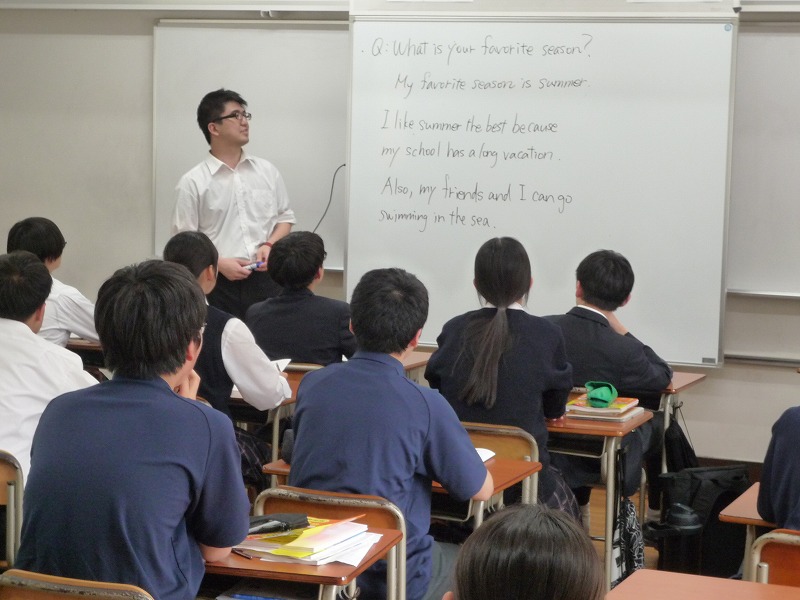 Q: What is your favorite season?
My favorite season is summer.
I like summer the best because
my school has a long vacation.
Also, my friends and I can go
swimming in the sea.